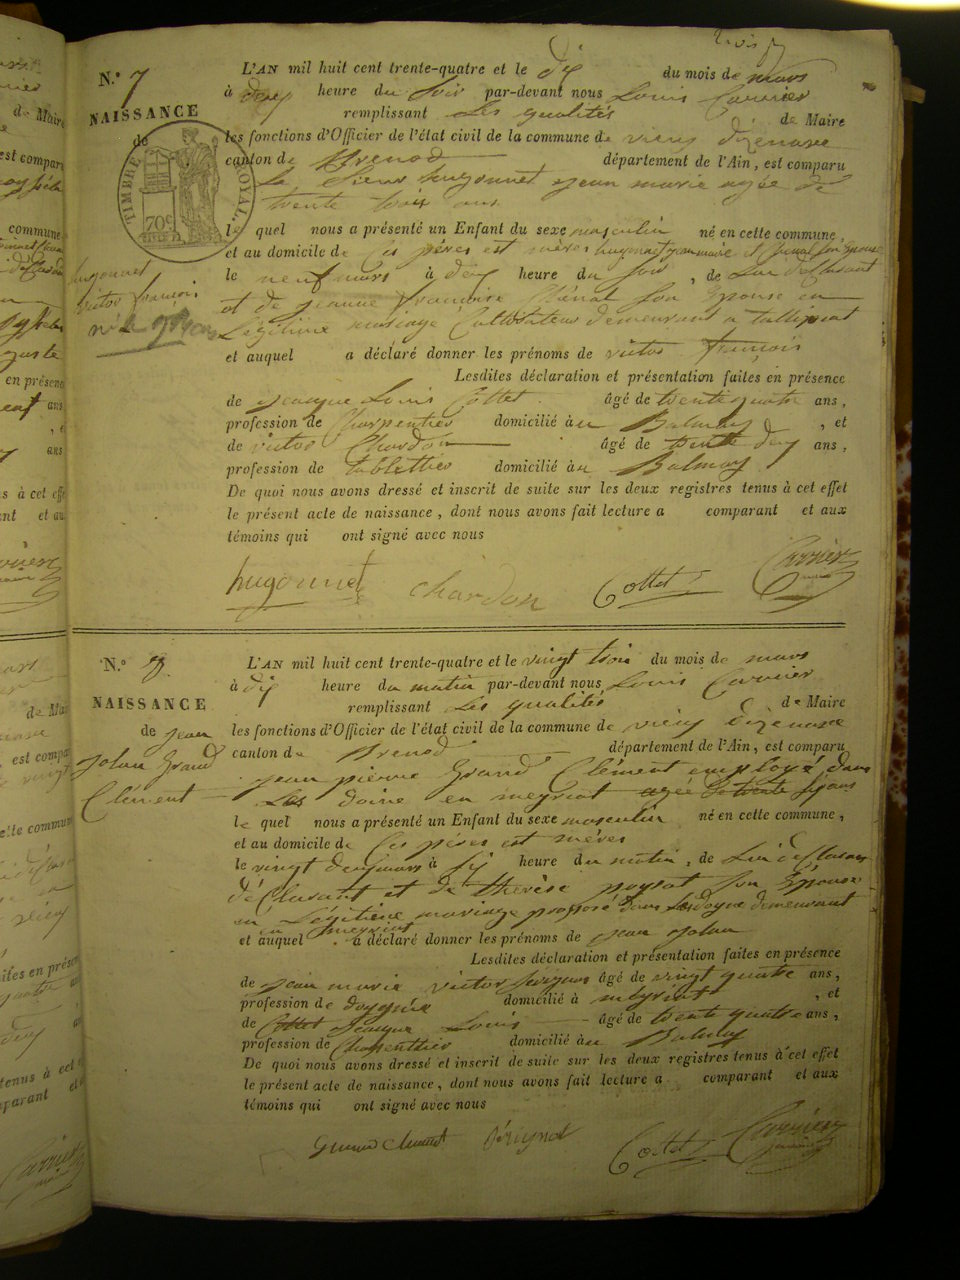 N.o 7
NAISSANCE
de
TIMBRE ROYAL.
70c
hugonnet
victor françois
né le
L'AN mil huit cent trente-quatre et le dix du mois de mars
à heure du soir par-devant nous Louis Carrier
remplissant Les qualités de Maire
les fonctions d'Officier de l'état civil de la commune de vieux dizenave
canton de Brenod département de l'Ain, est comparu
Le Sieur hugonnet jean marie agée de
trente trois ans
le quel nous a présenté un Enfant du sexe masculin né en cette commune,
et au domicile de Ces péres est mères hugonnet jean marie et Chenat son Epouse
le neuf mars à dix heure du soir, de Lui déClarant
et de jeanne françoise Chénat Son Epouse en
Légitime mariage Cultivateur demeurant a tallissiat
et auquel a déclaré donner les prénoms de victor françois
Lesdites déclaration et présentation faites en présence
de jacque Louis Cottet âgé de trente quatre ans,
profession de Charpentier domicilié à Balmay, et
de victor Chardon âgé de trente deux ans,
profession de tablettier domicilié à Balmay
De quoi nous avons dressé et inscrit de suite sur les deux registres tenus à cet effet
le présent acte de naissance, dont nous avons fait lecture a comparant et aux
témoins qui ont signé avec nous
hugonnet chardon Cottet Carrier
N.o 8
NAISSANCE
de jean
jolan Grand
Clément
L'AN mil huit cent trente-quatre et le vingt trois du mois de mars
à dix heure du matin par-devant nous Louis Carrier
remplissant Les qualités de Maire
les fonctions d'Officier de l'état civil de la commune de vieux dizenave
canton de Brenod département de l'Ain, est comparu
jean pierre Grand Clément employé dans
Les doine en meyriat agée de trente ans
le quel nous a présenté un Enfant du sexe masculin né en cette commune,
et au domicile de Ces péres est mères
le vingt deux mars à six heure du matin, de Lui déClarant
déClarant et de thérèse poysat son Epouse
en Légitime mariage préposé dans Les doyne demeurant
en meyriat
et auquel a déclaré donner les prénoms de jean jolan
Lesdites déclaration et présentation faites en présence
de jean marie victor âgé de vingt quatre ans,
profession de domicilié à meyriat, et
de Cottet jacque Louis âgé de trente quatre ans,
profession de Charpentier domicilié à Balmay
De quoi nous avons dressé et inscrit de suite sur les deux registres tenus à cet effet
le présent acte de naissance, dont nous avons fait lecture a comparant et aux
témoins qui ont signé avec nous
Grand Clement Cottet Carrier